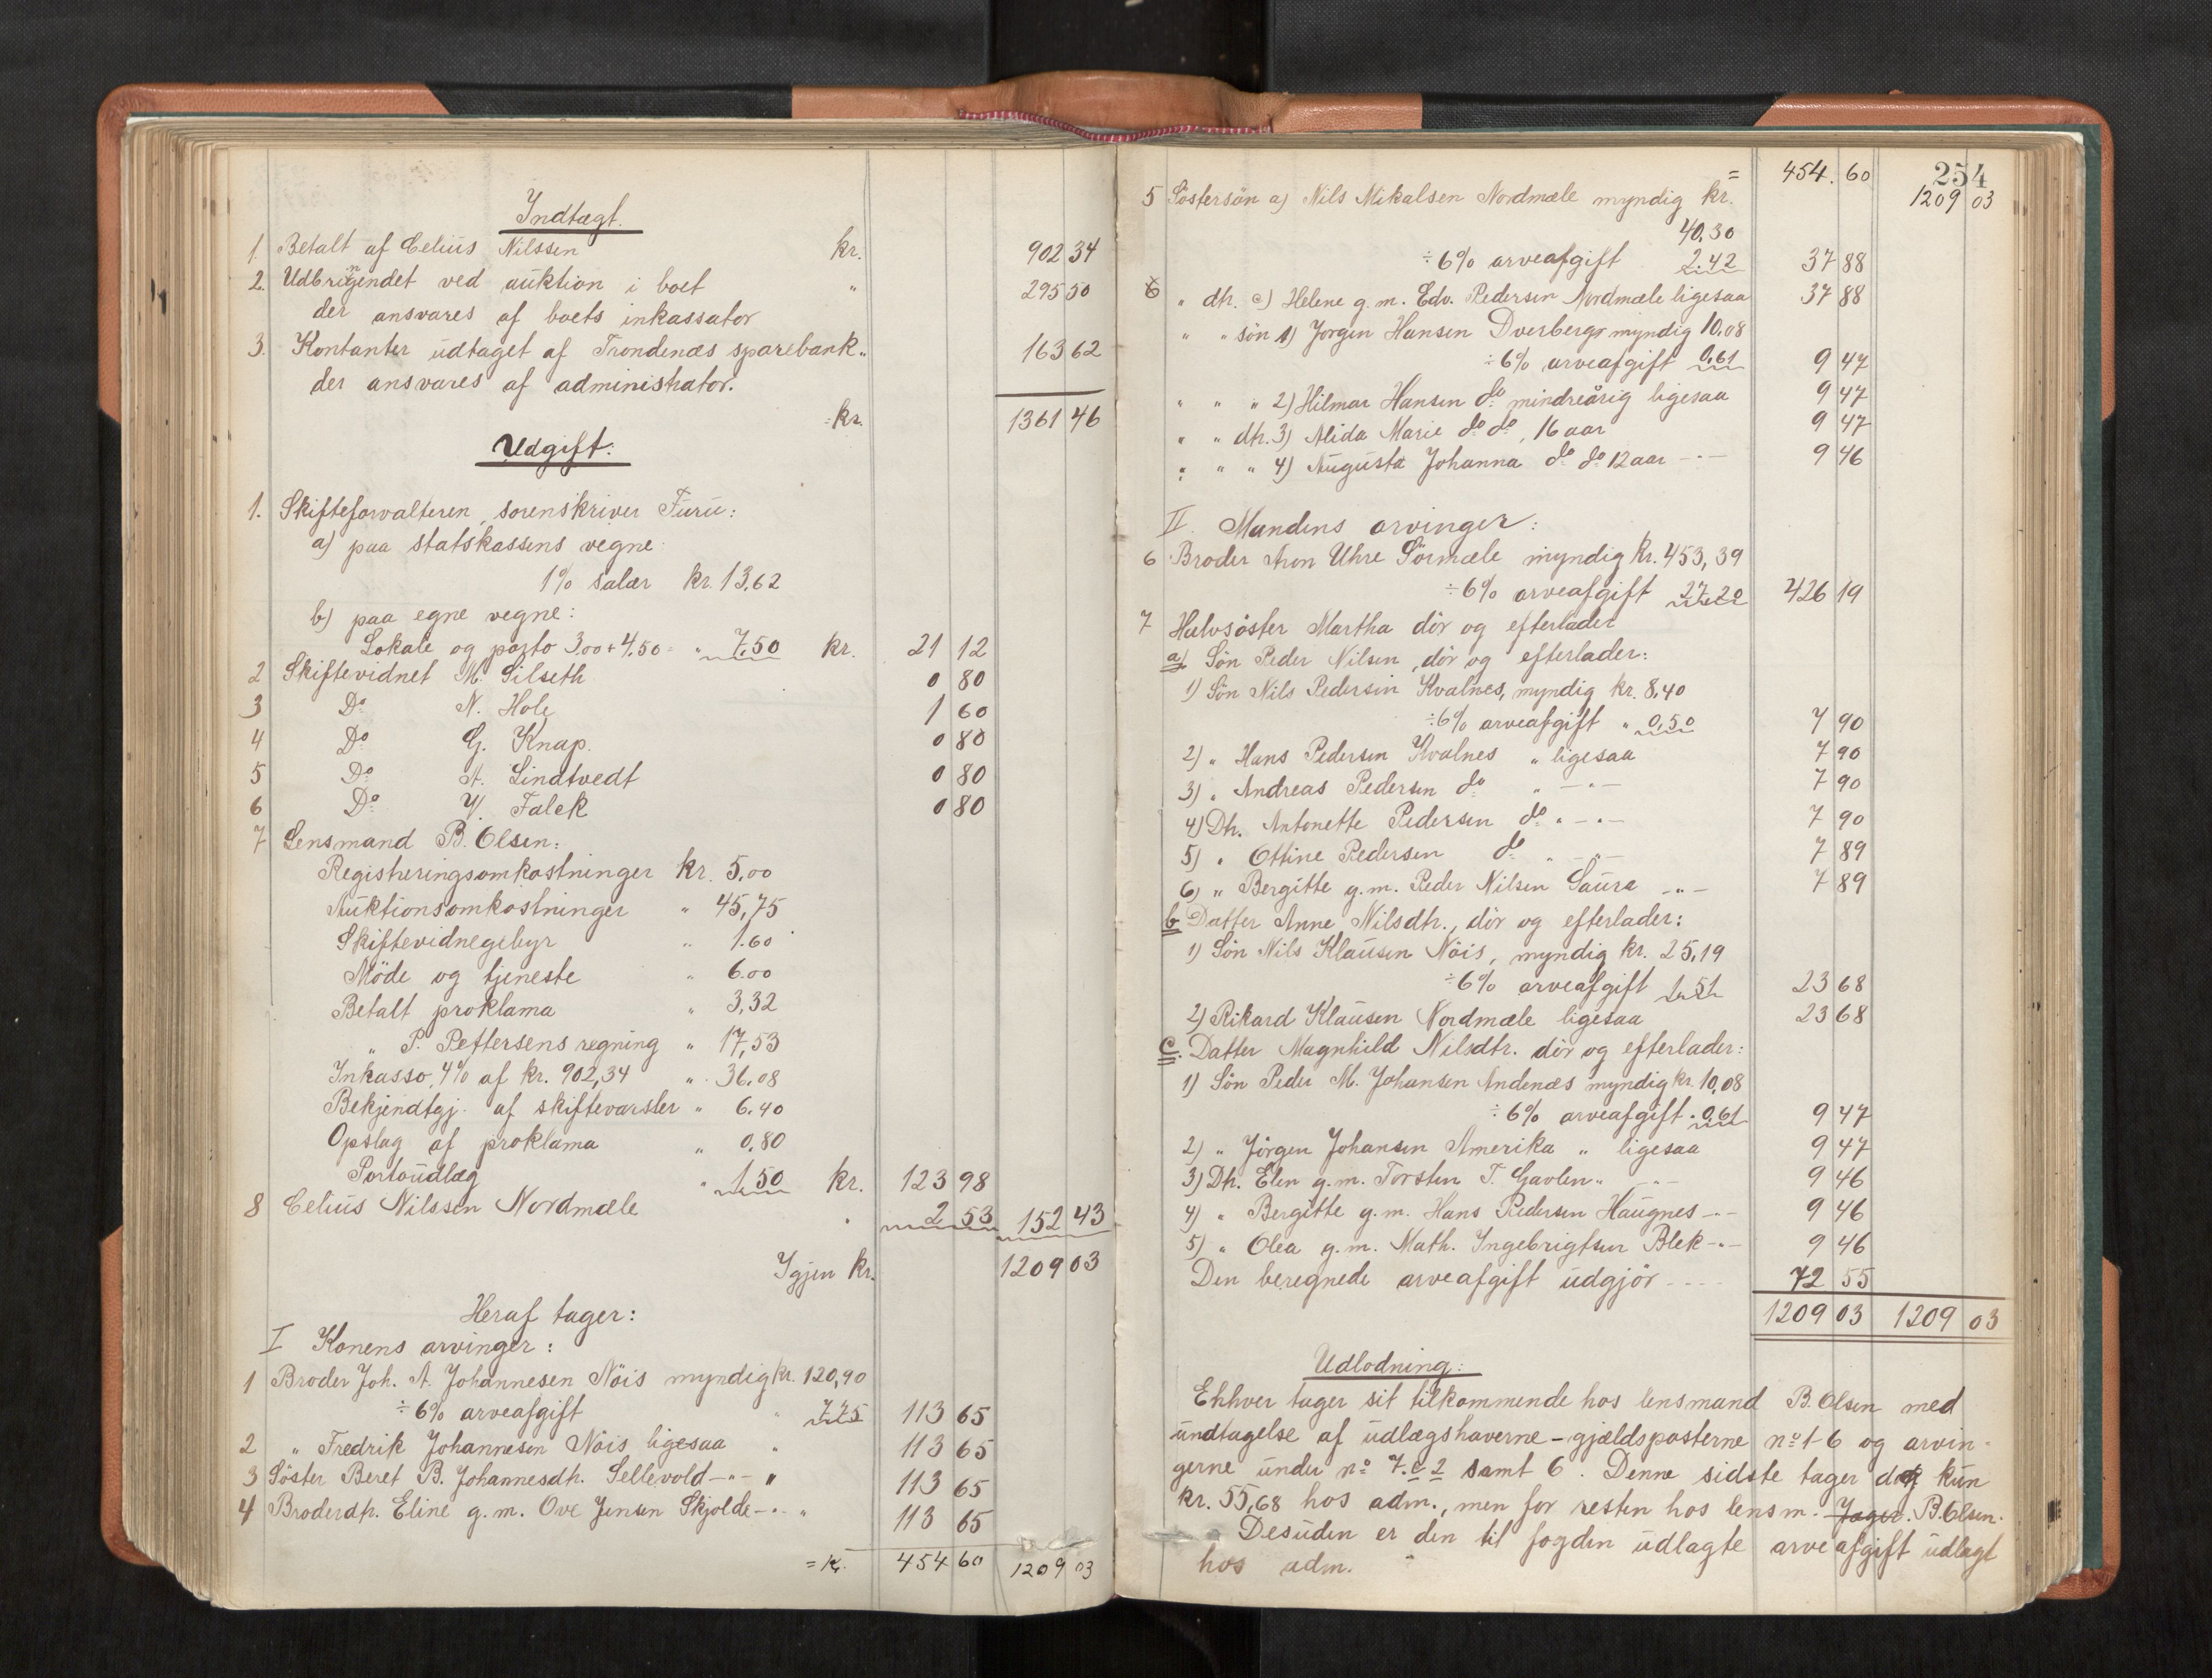 Indtægt.
1. Betalt af Celius Nilssen kr. 902 34
2. Udbringendet ved auktion i boet " 295 50
der ansvares af boets inkassator
3. Kontanter udtaget af Trondenæs sparebank " 163 62
der ansvares af administrator.
= kr. 1361 46
Udgift:
1. Skifteforvalteren, sorenskriver Furu:
a) paa statskassens vegne
1% salær kr. 13,62
b) paa egne vegne:
Lokale og porto 3,00 + 4,50 = " 7,50 kr. 21 12
2 Skiftevidnet M. Silseth 0 80
3 Do N. Hole 1 60
4 Do G. Knap. 0 80
5 Do A. Lindtvedt 0 80
6 Do V. Falck 0 80
7 Lensmand B. Olsen:
Registreringsomkostninger kr. 5,00
Auktionsomkostninger " 45,75
Skiftevidnegebyr " 1.60
Möde og tjeneste " 6.00
Betalt proklama " 3,32
" P. Pettersens regning " 17,53
Inkasso, 4% af kr. 902,34 " 36.08
Bekjendtgj. af skiftevarsler " 6.40
Opslag af proklama " 0,80
Portoudlæg " 1,50 kr. 123 98
8 Celius Nilssen Nordmæle " 2 53 152 43
Igjen kr. 1209 03
Heraf tager:
I Konens arvinger:
1 Broder Joh. A. Johannesen Nöis myndig kr. 120,90
÷ 6% arveafgift " 7.25 113 65
2 " Fredrik Johannesen Nöis ligesaa " 113 65
3 Söster Beret B. Johannesdtr. Sellevold -"- " 113 65
4 Broderdtr. Eline g.m. Ove Jensen Skjolde -"- " 113 65
= kr. 454 60 1209 03
254
= 454. 60 1209 03
5 Söstersön a) Nils Mikalsen Nordmæle myndig kr.
40,30
÷ 6% arveafgift 2.42 37 88
6 " dtr. c) Helene g.m. Edv. Pedersen Nordmæle ligesaa 37 88
" " sön 1) Jörgen Hansen Dverberg myndig 10,08
÷ 6% arveafgift 0,61 9 47
" " " 2) Hilmar Hansen do mindreårig ligesaa 9 47
" " dtr. 3) Alida Marie do do, 16 aar 9 47
" " " 4) Augusta Johanna do do 12 aar -"- 9 46
II. Mandens arvinger:
6 Broder Aron Uhre Sörmæle myndig kr. 453,39
÷ 6% arveafgift 27,20 426 19
7 Halvsöster Martha dör og efterlader
a) Sön Peder Nilsen, dör og efterlader:
1) Sön Nils Pedersen Kvalnes, myndig kr. 8,40
÷ 6% arveafgift " 0,50 7 90
2) " Hans Pedersen Kvalnes " ligesaa 7 90
3) " Andreas Pedersen do " -"- 7 90
4) Dtr. Antonette Pedersen do " -"- 7 90
5) " Ottine Pedersen do " -"- 7 89
6) " Bergitte g.m. Peder Nilsen Saura -"- 7 89
b Datter Anne Nilsdtr., dör og efterlader:
1) Sön Nils Klausen Nöis, myndig kr. 25,19
÷ 6% arveafgift 1.51 23 68
2) Rikard Klausen Nordmæle ligesaa 23 68
c. Datter Magnhild Nilsdtr. dör og efterlader:
1) Sön Peder M. Johansen Andenæs myndig kr. 10,08
÷ 6% arveafgift " 0,61 9 47
2) " Jörgen Johansen Amerika " ligesaa 9 47
3) Dtr. Elen g.m. Torsten T. Gavlen " -"- 9 46
4) " Bergitte g.m. Hans Pedersen Haugnes -"- 9 46
5) " Olea g.m. Math. Ingebrigtsen Blek -"- 9 46
Den beregnede arveafgift udgjör - - - - 72 55
1209 03 1209 03
Udlodning:
Ehhver tager sit tilkommende hos lensmand B. Olsen med
undtagelse af udlægshaverne - gjældsposterne no 1-6 og arvin-
gerne under no 7.c 2 samt 6. Denne sidste tager dog kun
kr. 55,68 hos adm., men for resten hos lensm. Jager. B. Olsen.
Desuden er den til fogden udlagte arveafgift udlagt
hos adm.